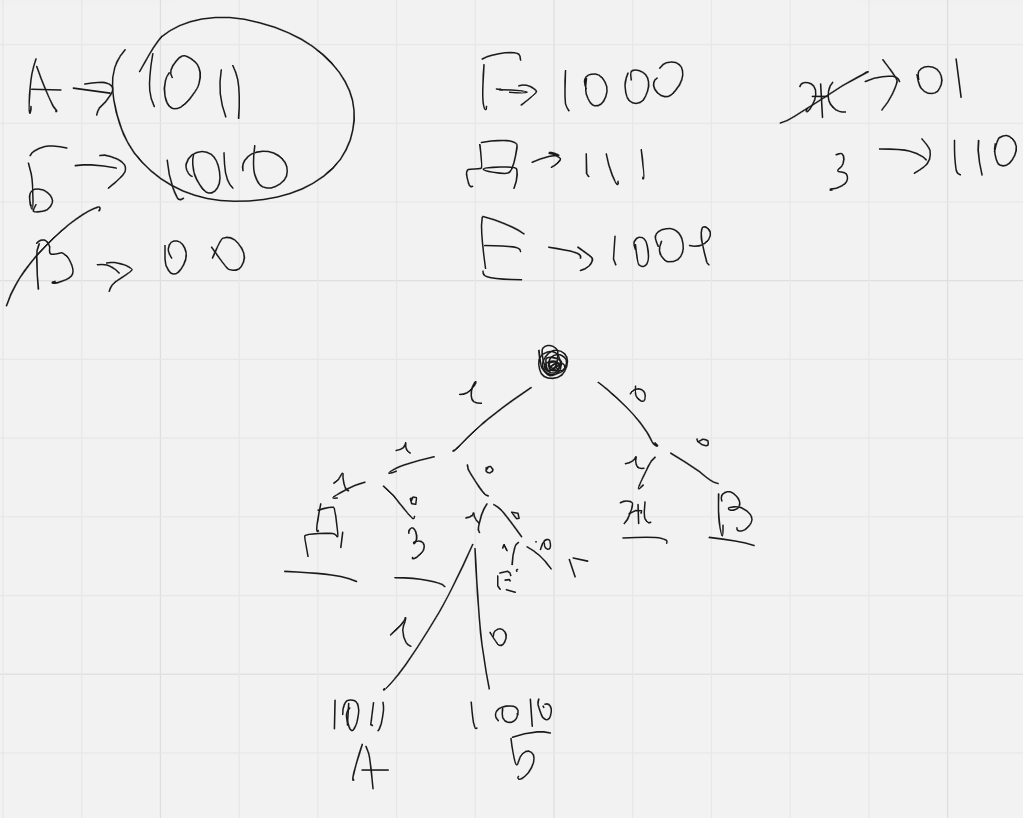 А → 1011
Б → 1010
В → 00
Г → 1000
Д → 111
Е → 1001
Ж → 01
З → 110
1 0
1 0 1 0
1 0 1 0 Ж В
Д З 1 0
Е Г
1 0
1011 1010
А Б